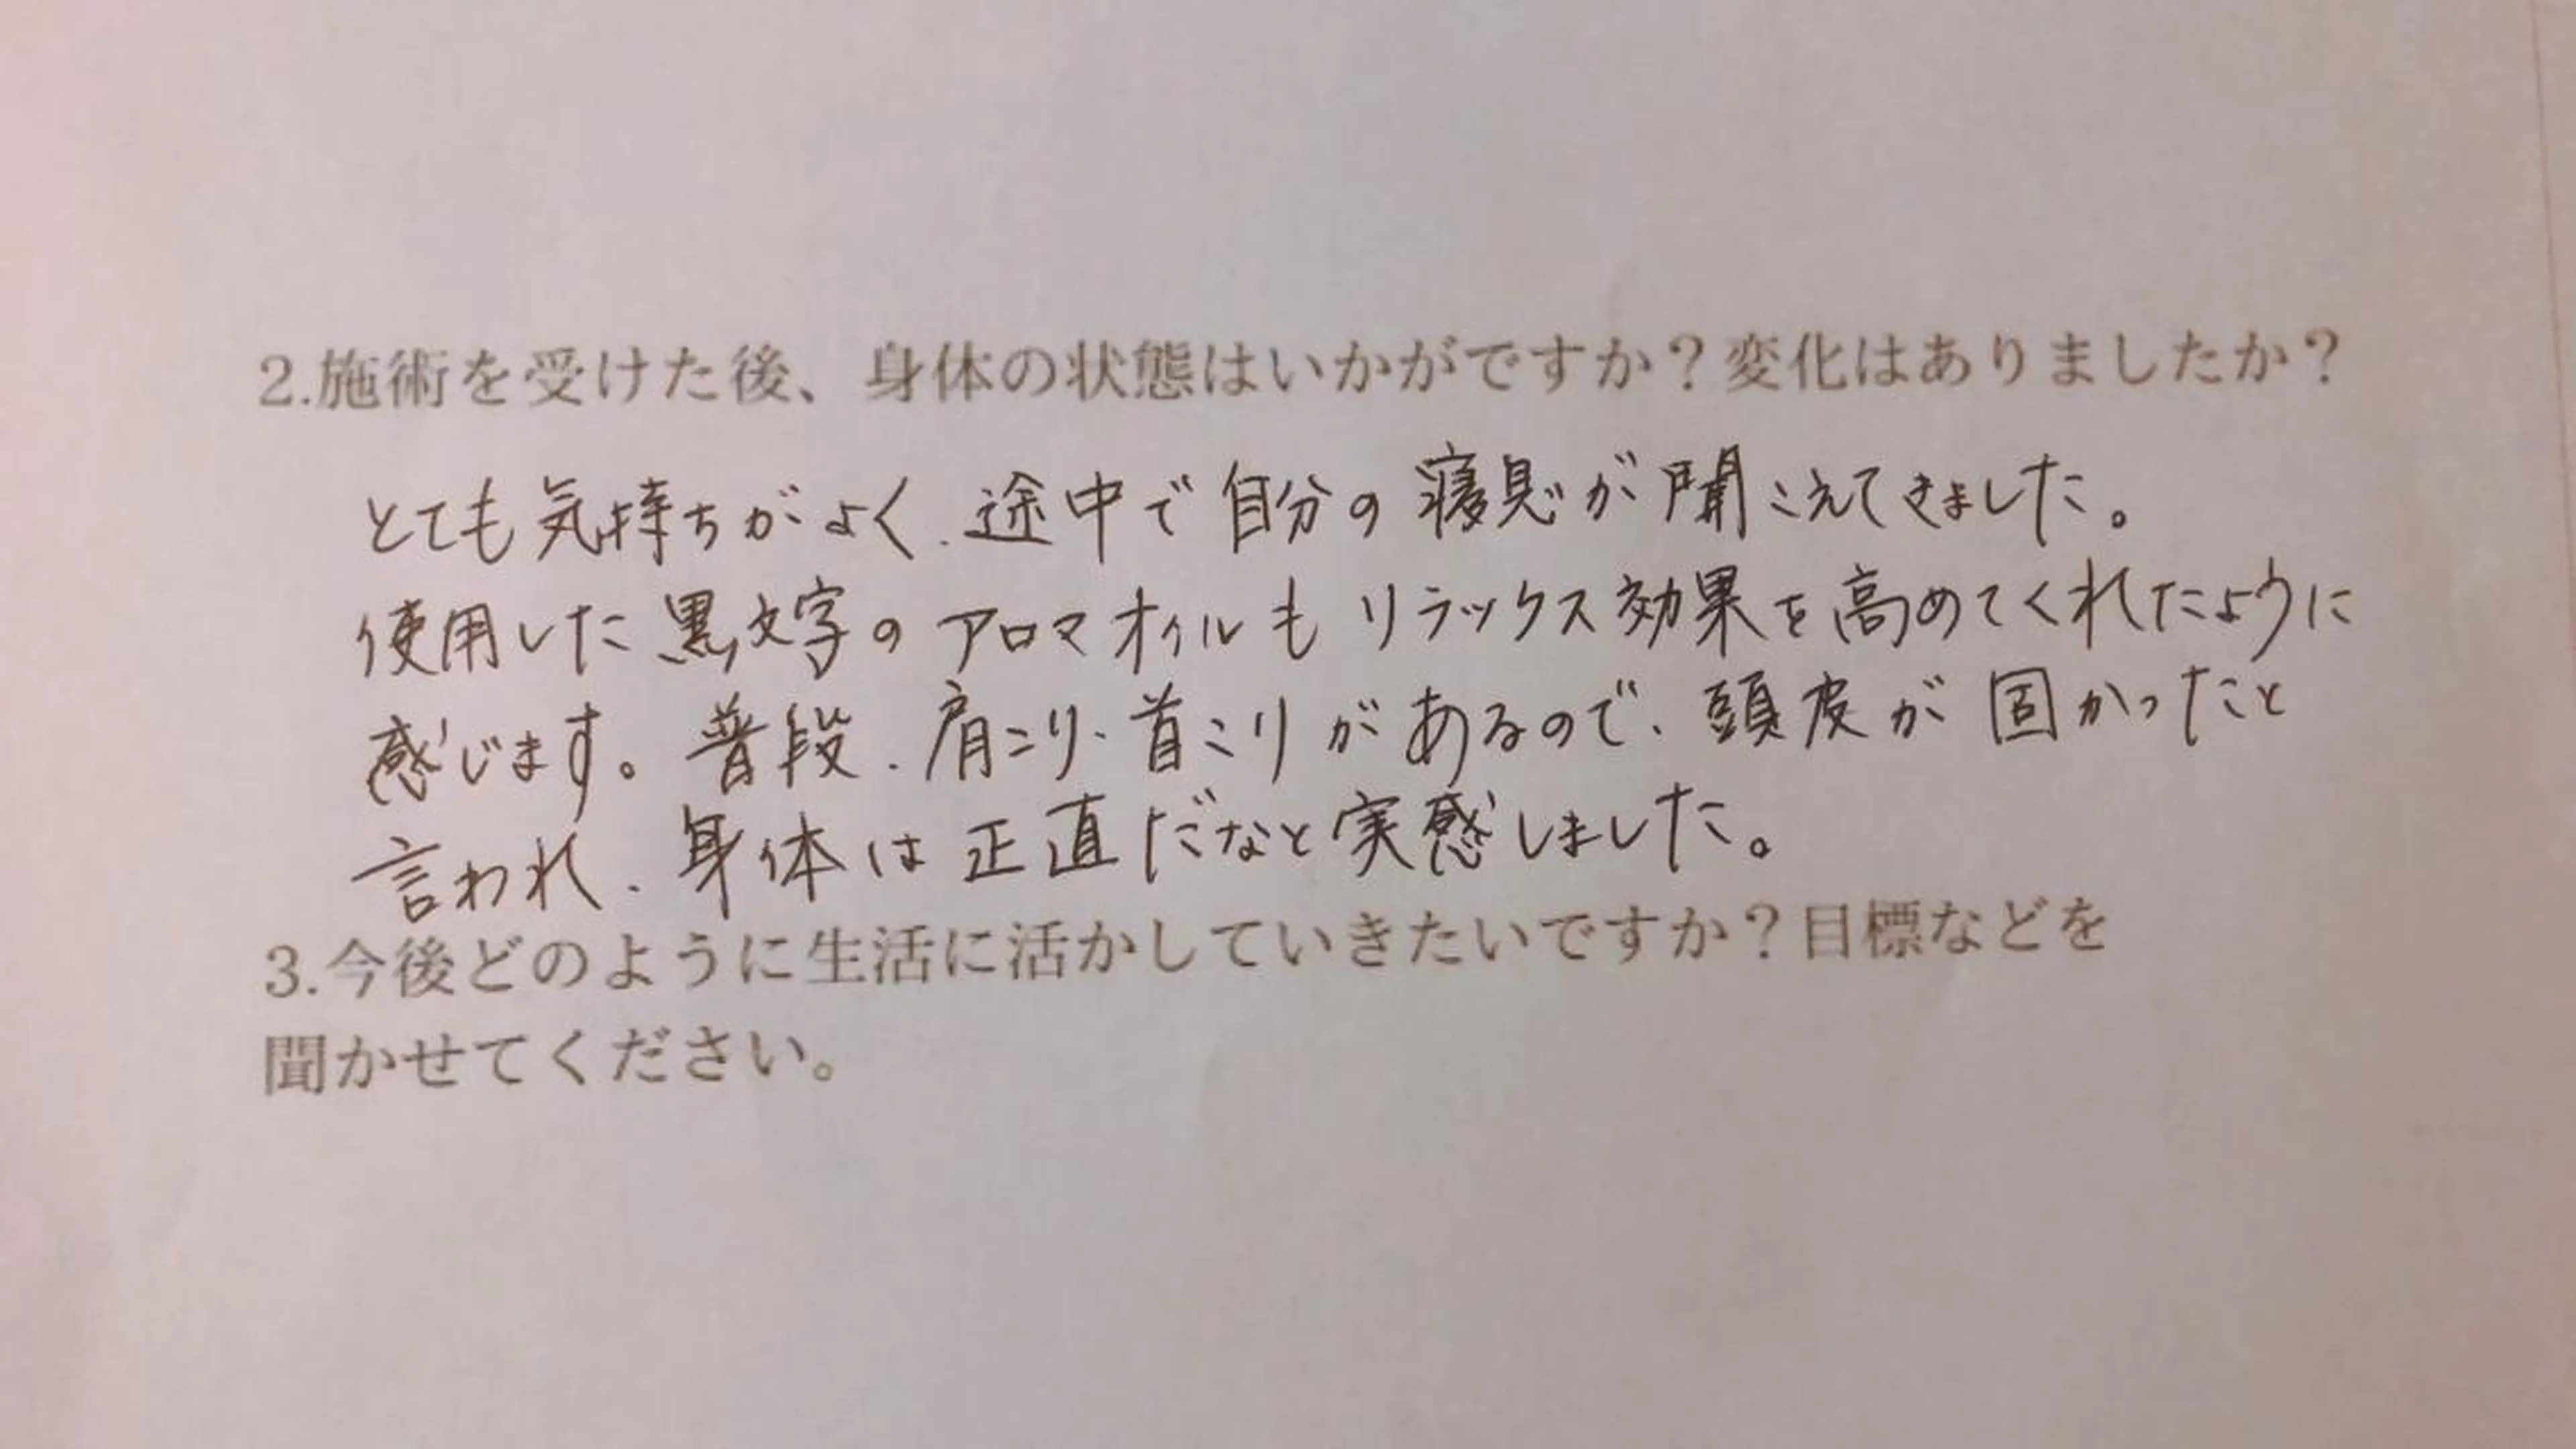 2.施術を受けた後、身体の状態はいかがですか？変化はありましたか？
とても気持ちがよく、途中で自分の寝息が聞こえてきました。
使用した黒文字のアロマオイルもリラックス効果を高めてくれたように
感じます。普段、肩こり、首こりがあるので、頭皮が固かったと
言われ、身体は正直だなと実感しました。
3.今後どのように生活に活かしていきたいですか？目標などを
聞かせてください。